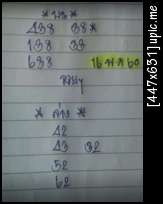 * บน *
438 38*
138 33
638 16 ก.ค 60
* ล่าง *
42
43 32
52
62
[447x631] upic.me